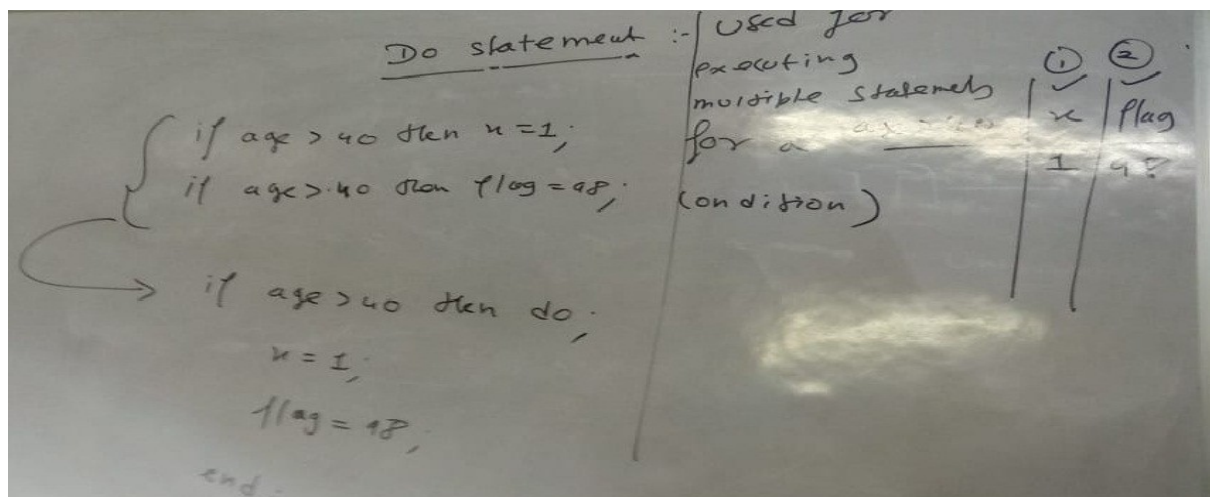 Do statement :- used for
executing
multiple statements
for a
condition)
if age > 40 then x = 1;
if age > 40 then flag = 98;
if age > 40 then do;
x = 1;
flag = 98;
end;
① ②
x flag
1